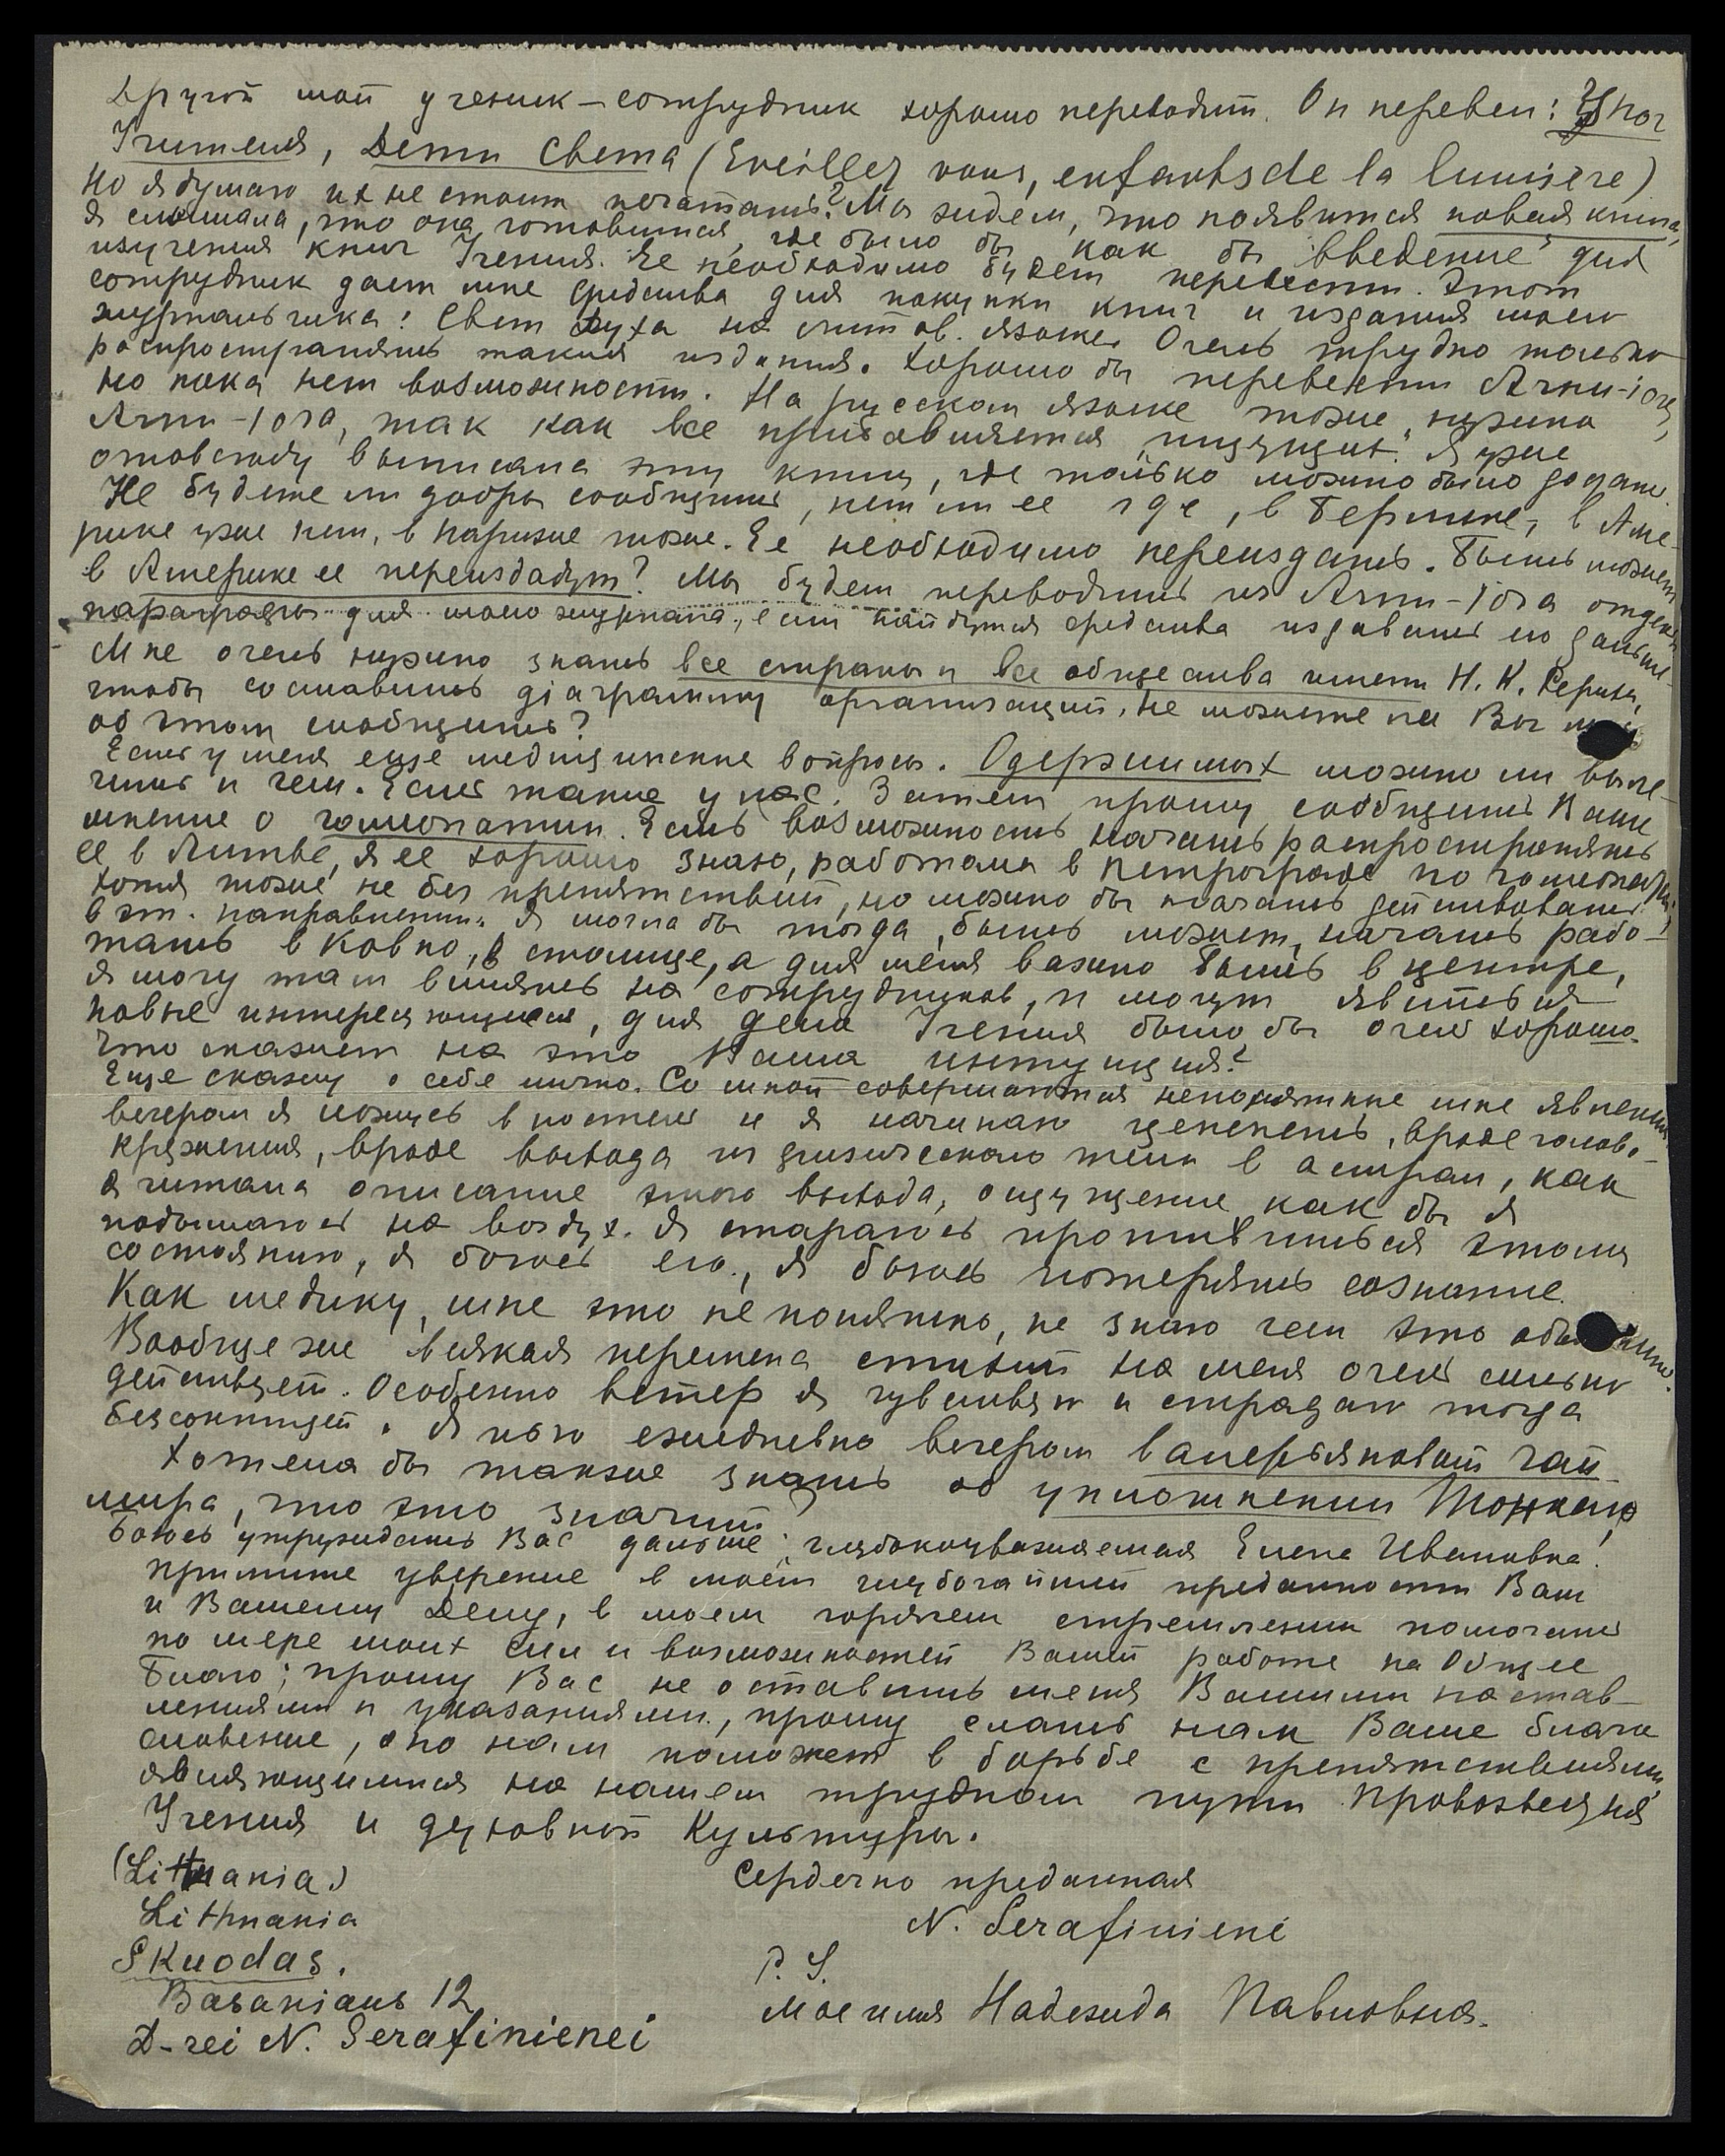 Другой мой ученик-сотрудник хорошо переводит. Он перевел: Зов
Учителя, Дети Света (Eveillez vous, enfants de la lumiere)
Но я думаю их не стоит печатать? Мы ждем, что появится новая книга,
я слышала, что она готовится, где было бы как бы "введение" для
изучения книг Учения. Ее необходимо будет перевести. Этот
сотрудник дает мне средства для покупки книг и издания моего
журнальчика: Свет Духа на литов. языке. Очень трудно только
распространять такия издания. Хорошо бы перевести Агни-Iога,
но пока нет возможности. На русском языке тоже нужна
Агни-Iога, так как все прибавляется ищущих. Я уже
отовсюду выписала эту книгу, где только можно было достать.
Не будете ли добры сообщить, нет ли ее где, в Берлине, в Аме-
рике уже нет, в Париже тоже. Ее необходимо переиздать. Быть может
в Америке ее переиздадут? Мы будем переводить из Агни-Iога отдельн
параграфы для моего журнала, если найдутся средства издавать его дальше.
Мне очень нужно знать все страны и все общества имени Н. К. Рериха,
чтобы составить дiаграмму организаций. Не можете ли Вы мне
об этом сообщить?
Есть у меня еще медицинские вопросы. Одержимых можно ли выле-
чить и чем. Есть такие у нас. Затем прошу сообщить Ваше
мнение о гомеопатии. Есть возможность начать распространять
ее в Литве, я ее хорошо знаю, работала в Петрограде по гомеопатии,
хотя тоже не без препятствий, но можно бы начать действовать
в эт. направлении. Я могла бы тогда, быть может, начать рабо-
тать в Ковно, в столице, а для меня важно быть в центре,
я могу там влиять на сотрудников, и могут явиться
новые интересующиеся, для дела Учения было бы очень хорошо.
Что скажет на это Ваша интуиция?
Еще скажу о себе лично. Со мной совершаются непонятные мне явления
вечером я ложусь в постель и я начинаю цепенеть, вроде голово-
кружения, вроде выхода из физического тела в астрал, как
я читала описание этого выхода, ощущение, как бы я
подымаюсь на воздух. Я стараюсь противиться этому
состоянию, я боюсь его, я боюсь потерять сознание.
Как медику, мне это непонятно, не знаю чем это
Вообще же всякая перемена стихий на меня очень сильно
действует. Особенно ветер я чувствую и страдаю тогда
безсонницей. Я пью ежедневно вечером валерьяновый чай.
Хотела бы также знать об уплотнении Тонкаго
мира, что это значит?
Боюсь утруждать Вас дальше, глубокоуважаемая Елена Ивановна!
примите уверение в моей глубочайшей преданности Вам
и Вашему Делу, в моем горячем стремлении помогать
по мере моих сил и возможностей Вашей работе на Общее
Благо; прошу Вас не оставить меня Вашими настав-
лениями и указаниями, прошу слать нам Ваше благо
словение, оно нам поможет в борьбе с препятствиями,
являющимися на нашем трудном пути Провозвестия
Учения и духовной Культуры.
(Lithuania)
Сердечно преданная
Lithuania
N. Serafinienė
Skuodas.
P. S.
Basaniaus 12
Мое имя Надежда Павловна.
D-rei N. Serafinienei